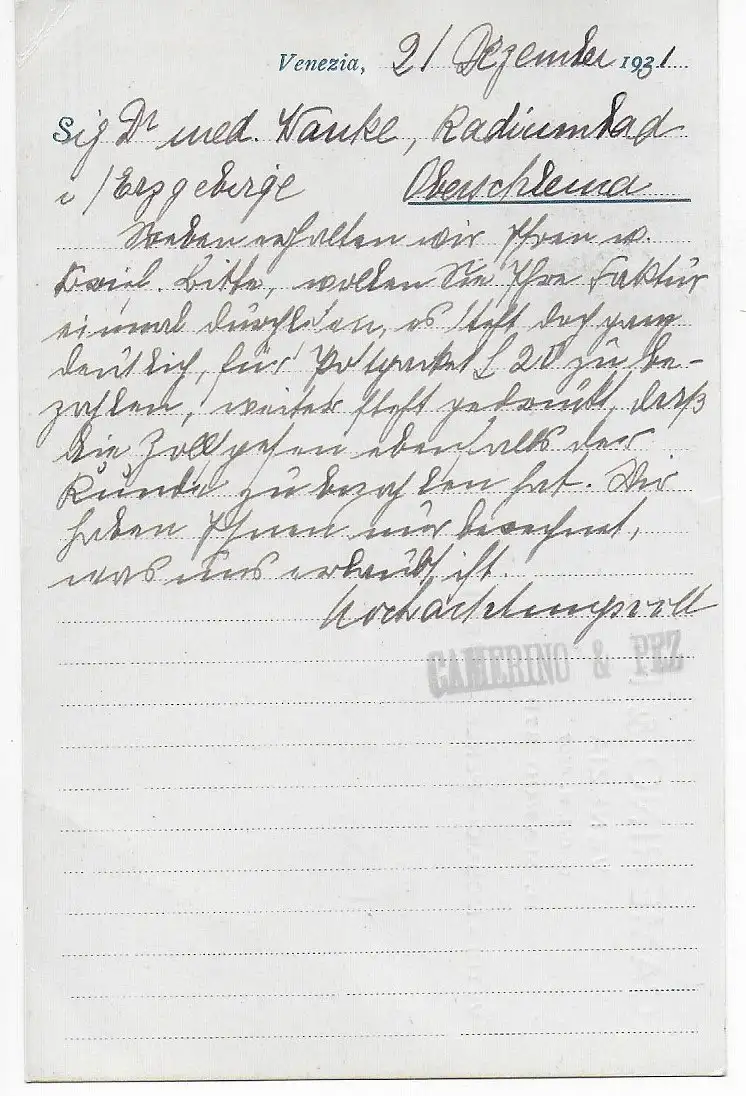 Venezia, 21 Dezember 1931
Sig Dr med. Wanke, Radiumbad
i/Erzgebirge Oberschlema
Soeben erhalten wir Ihren w.
Brief. Bitte, wollen Sie Ihre Faktur
einmal durchlesen, es steht doch ganz
deutlich, für Postpacket £ 20 zu be-
zahlen, weiter steht gedruckt, dass
die Zollspesen ebenfalls der
Kunde zu bezahlen hat. Wir
haben Ihnen nur berechnet,
was uns erlaubt ist.
Hochachtungsvoll
CAMERINO & PEZ